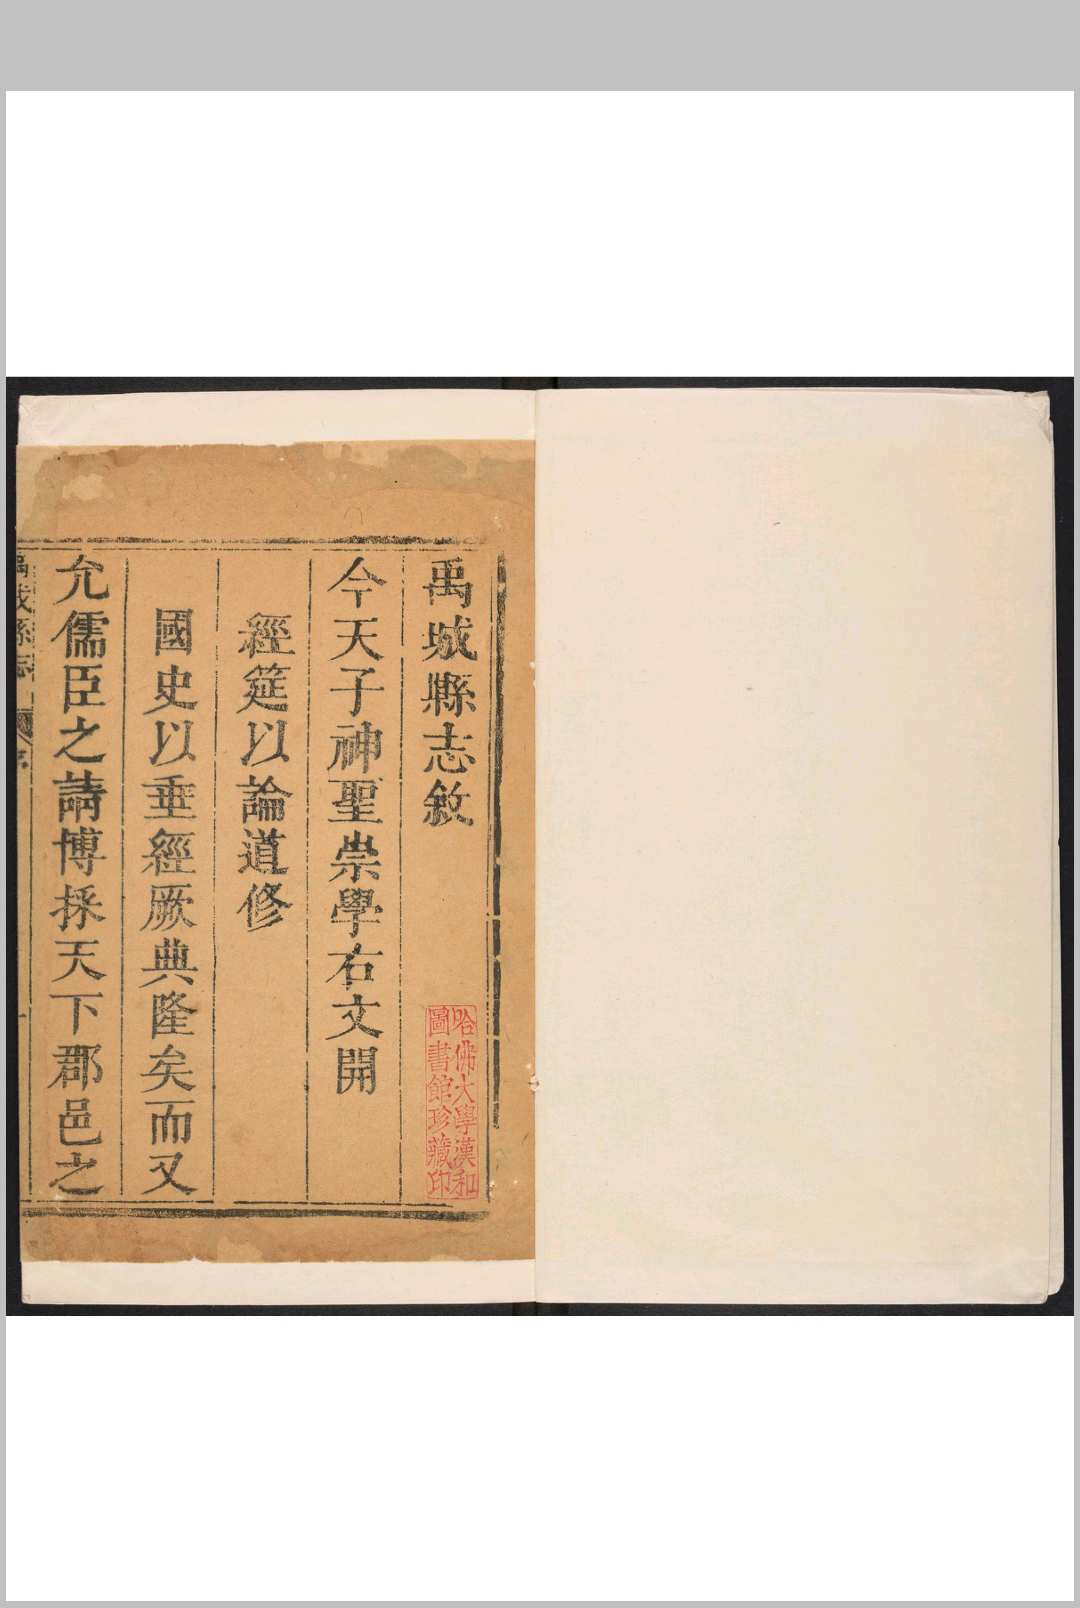 禹城縣志敘
哈佛大學漢和
圖書館珍藏印
今天子神聖崇學右文開
經筵以論道修
國史以垂經厥典隆矣而又
允儒臣之請博採天下郡邑之
禹城縣志